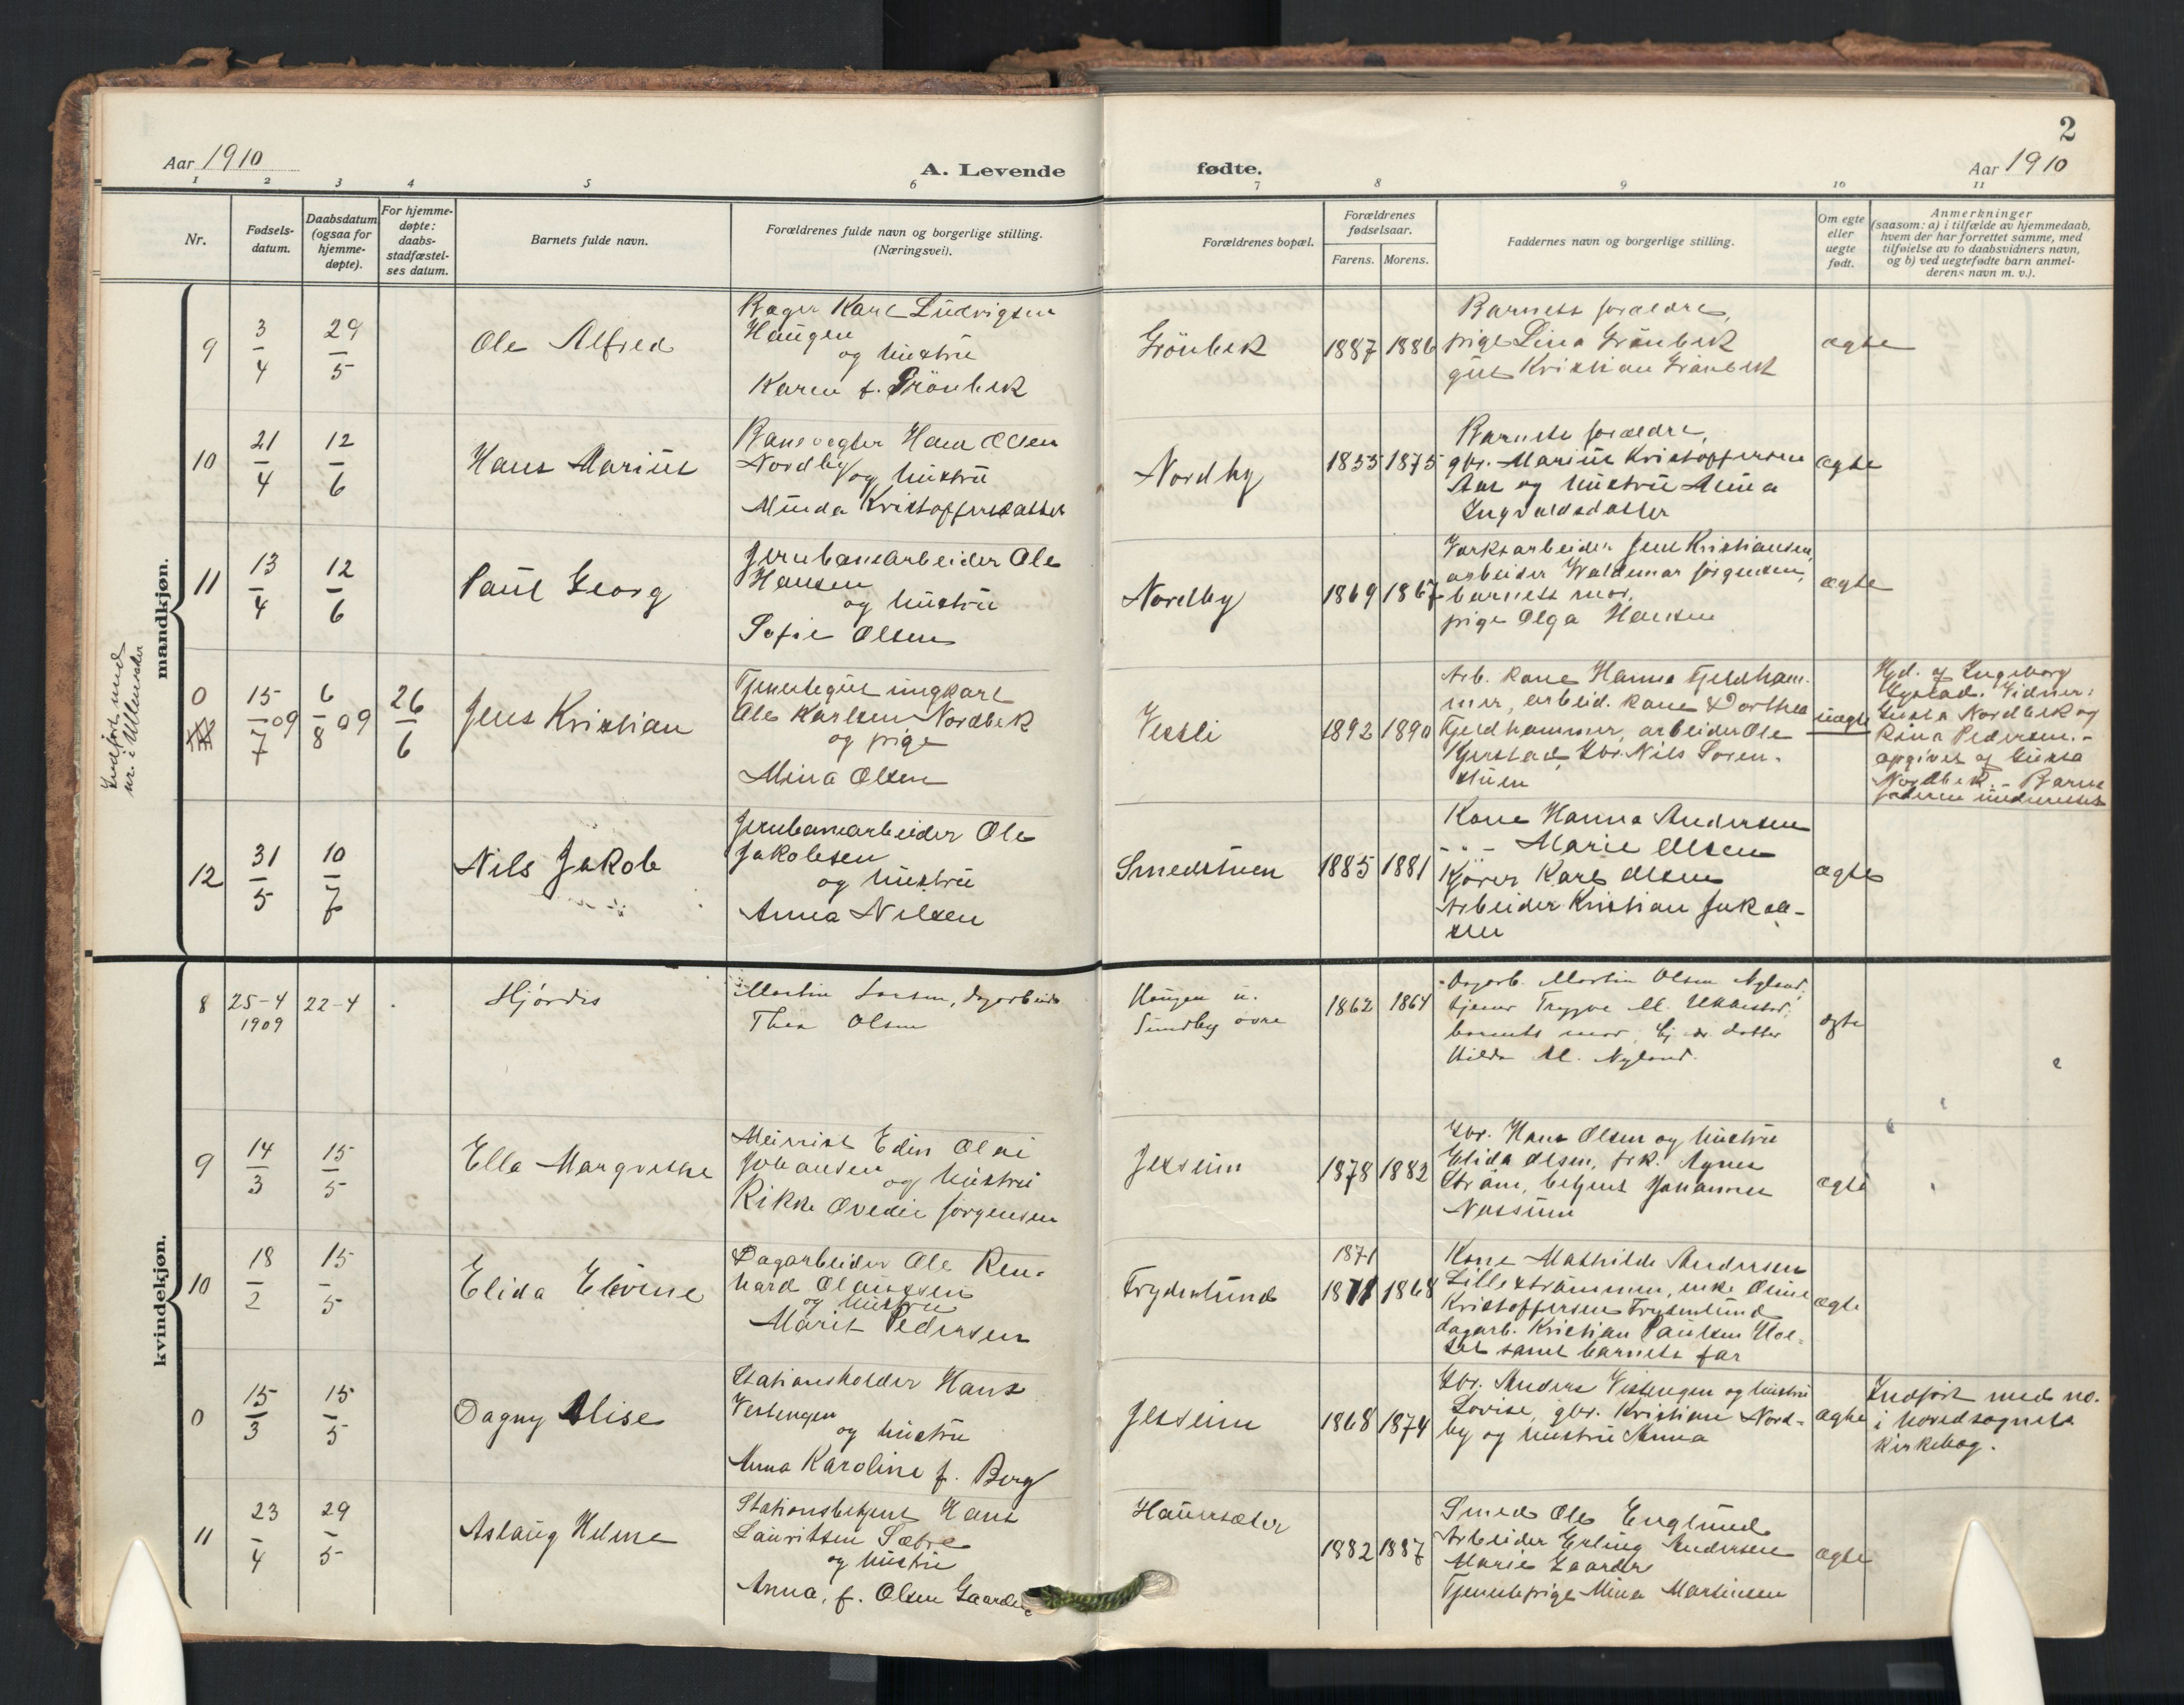 2
Aar 1910
A. Levende
fødte.
Aar 1910
1 2 3 4 5 6 7 8 9 10 11
Nr.
Fødsels-
datum.
Daabsdatum
(ogsaa for
hjemme-
døpte).
For hjemme-
døpte:
daabs-
stadfæstel-
ses datum.
Barnets fulde navn.
Forældrenes fulde navn og borgerlige stilling.
(Næringsvei).
Forældrenes bopæl.
Forældrenes
fødselsaar.
Farens. Morens.
Faddernes navn og borgerlige stilling.
Om egte
eller
uegte
født.
Anmerkninger
(saasom: a) i tilfælde av hjemmedaab,
hvem der har forrettet samme, med
tilføielse av to daabsvidners navn,
og b) ved uegtefødte barn anmel-
derens navn m. v.).
mandkjøn.
9
3/4
29/5
Ole Alfred
Bager Karl Ludvigsen
Haugen
og hustru
Karen f. Grönbek
Grönbek
1887 1886
Barnets forældre,
pige Lina Grönbek
gut Kristian Grönbek
ægte
10
21/4
12/6
Hans Marius
Banevogter Hans Olsen
Nordby
og hustru
Minda Kristoffersdatter
Nordby
1855 1875
Barnets forældre,
gbr. Marius Kristoffersen
Aas og hustru Mina
Ingvaldsdatter
ægte
11
13/4
12/6
Paul Georg
Jernbanearbeider Ole
Hansen
og hustru
Sofie Olsen
Nordby
1869 1867
Verksarbeider Jens Kristiansen,
arbeider Waldemar Jörgensen,
barnets mor,
pige Olga Hansen
ægte
Indført med
nr. i Ullensaker
0
15/7 09
6/8 09
26/6
Jens Kristian
Tjenestegut ungkarl
Ole Karlsen Nordbek
og pige
Mina Olsen
Vesli
1892 1890
Arb. kone Hanna Fjeldham-
mer, arbeid. kone Dorthea
Fjeldhammer, arbeider Ole
Kjerstad, Gbr. Nils Soren-
stuen
uægte
Hjd. af Ingeborg
Vidner:
Gusta Nordbek og
Lina Pedersen.-
opgivet af Gusta
Nordbek.- Barne
faderen underrettet
12
31/5
10/7
Nils Jakob
Jernbanearbeider Ole
Jakobsen
og hustru
Anna Nilsen
Smedstuen
1885 1881
Kone Hanna Andersen
- - - Marie Olsen
Kjører Karl Olsen
Arbeider Kristian Jakob-
sen
ægte
kvindekjøn.
8
25-4
1909
22-4
Hjördis
Martin Larsen, dagarbeider
Thea Olsen
Haugen u.
Sundby övre
1862 1864
Dagarb. Martin Olsen Nyland;
tjener Trygve M.
barnets mor,
Hilda M. Nyland.
ægte
9
14/3
15/5
Ella Margrethe
Meierist Edin Olai
Johansen
og hustru
Rikke Ovedie Jörgensen
Jessum
1878 1882
Gbr. Hans Olsen og hustru
Elida Olsen, frk. Agnes
Ström, betjent Johannes
Nossum
ægte
10
18/2
15/5
Elida Elvine
Dagarbeider Ole Ren-
hard Olaussen
og hustru
Marit Pedersen
Frydenlund
1871
1871 1868
Kone Mathilde Andersen
Lilleströmmen, enke Oline
Kristoffersen Frydenlund
dagarb. Kristian Paulsen Hol-
set samt barnets far
ægte
0
15/3
15/5
Dagny Alise
Stationsholder Hans
Vestengen
og hustru
Anna Karoline f. Berg
Jessum
1868 1874
Gbr. Anders Vestengen og hustru
Lovise, gbr. Kristian Nord-
by og hustru Anna
ægte
Indfört med no.
i hovedsognets
kirkebog.
11
23/4
29/5
Aslaug Helene
Stationsbetjent Hans
Lauritsen Sætre
og hustru
Anna, f. Olsen Gaarder
Hauersæter
1882 1887
Smed Ole Englund
Arbeider Erling Andersen
Marie Gaarder
Tjenestepige Mina Martinsen
ægte